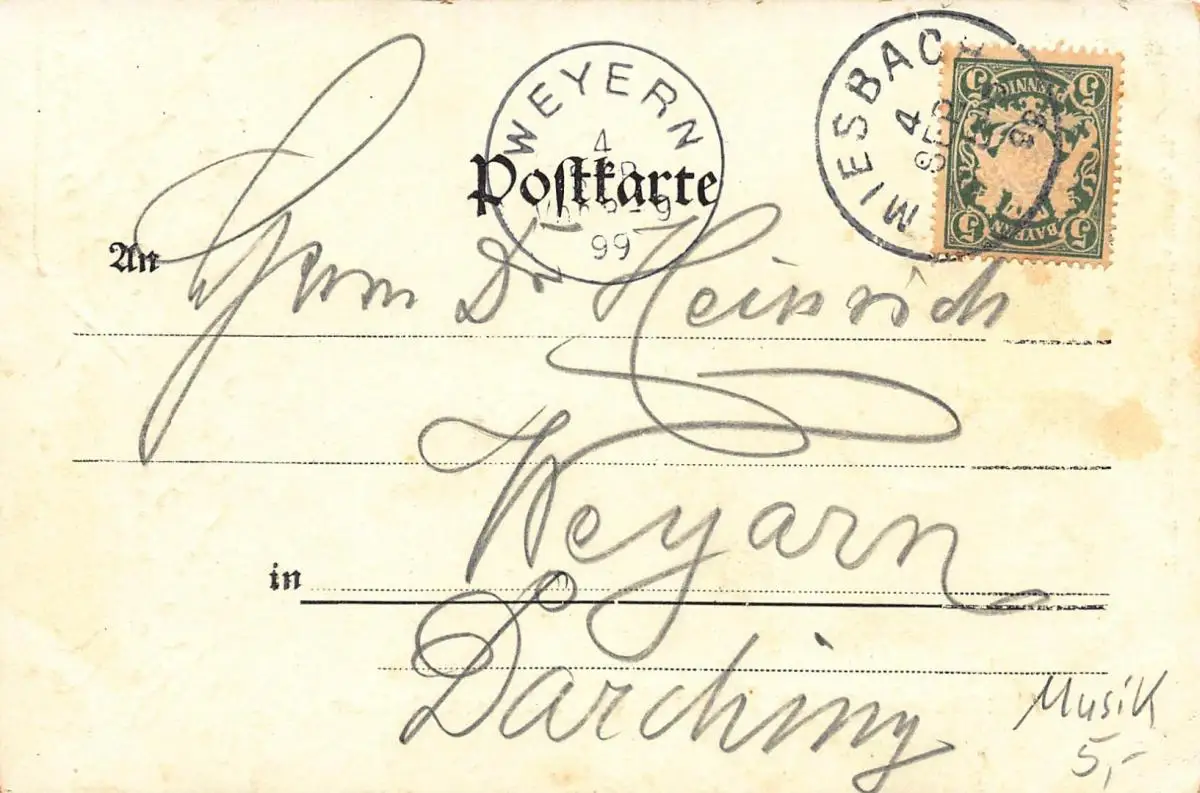 WEYERN
4
99
MIESBACH
4
SEP
99
5 PFENNIG 5
5 BAYERN 5
Postkarte
An Herrn Dr Heinrich
Weyarn
in
Darching
Musik
5,-